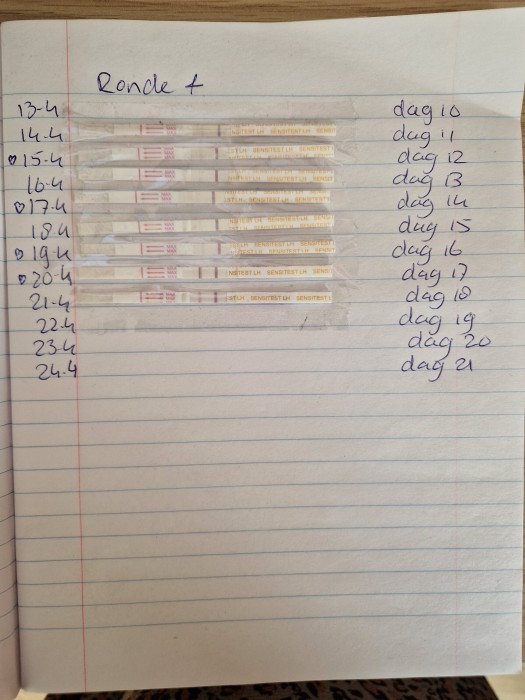 Ronde 1
13-4 dag 10
14-4 SENSITEST LH SENSITEST LH dag 11
♡15-4 SENSITEST LH SENSITEST dag 12
16-4 dag 13
♡17-4 dag 14
18-4 dag 15
♡19-4 dag 16
♡20-4 SENSITEST LH dag 17
21-4 LH SENSITEST LH SENSITEST dag 18
22-4 dag 19
23-4 dag 20
24-4 dag 21